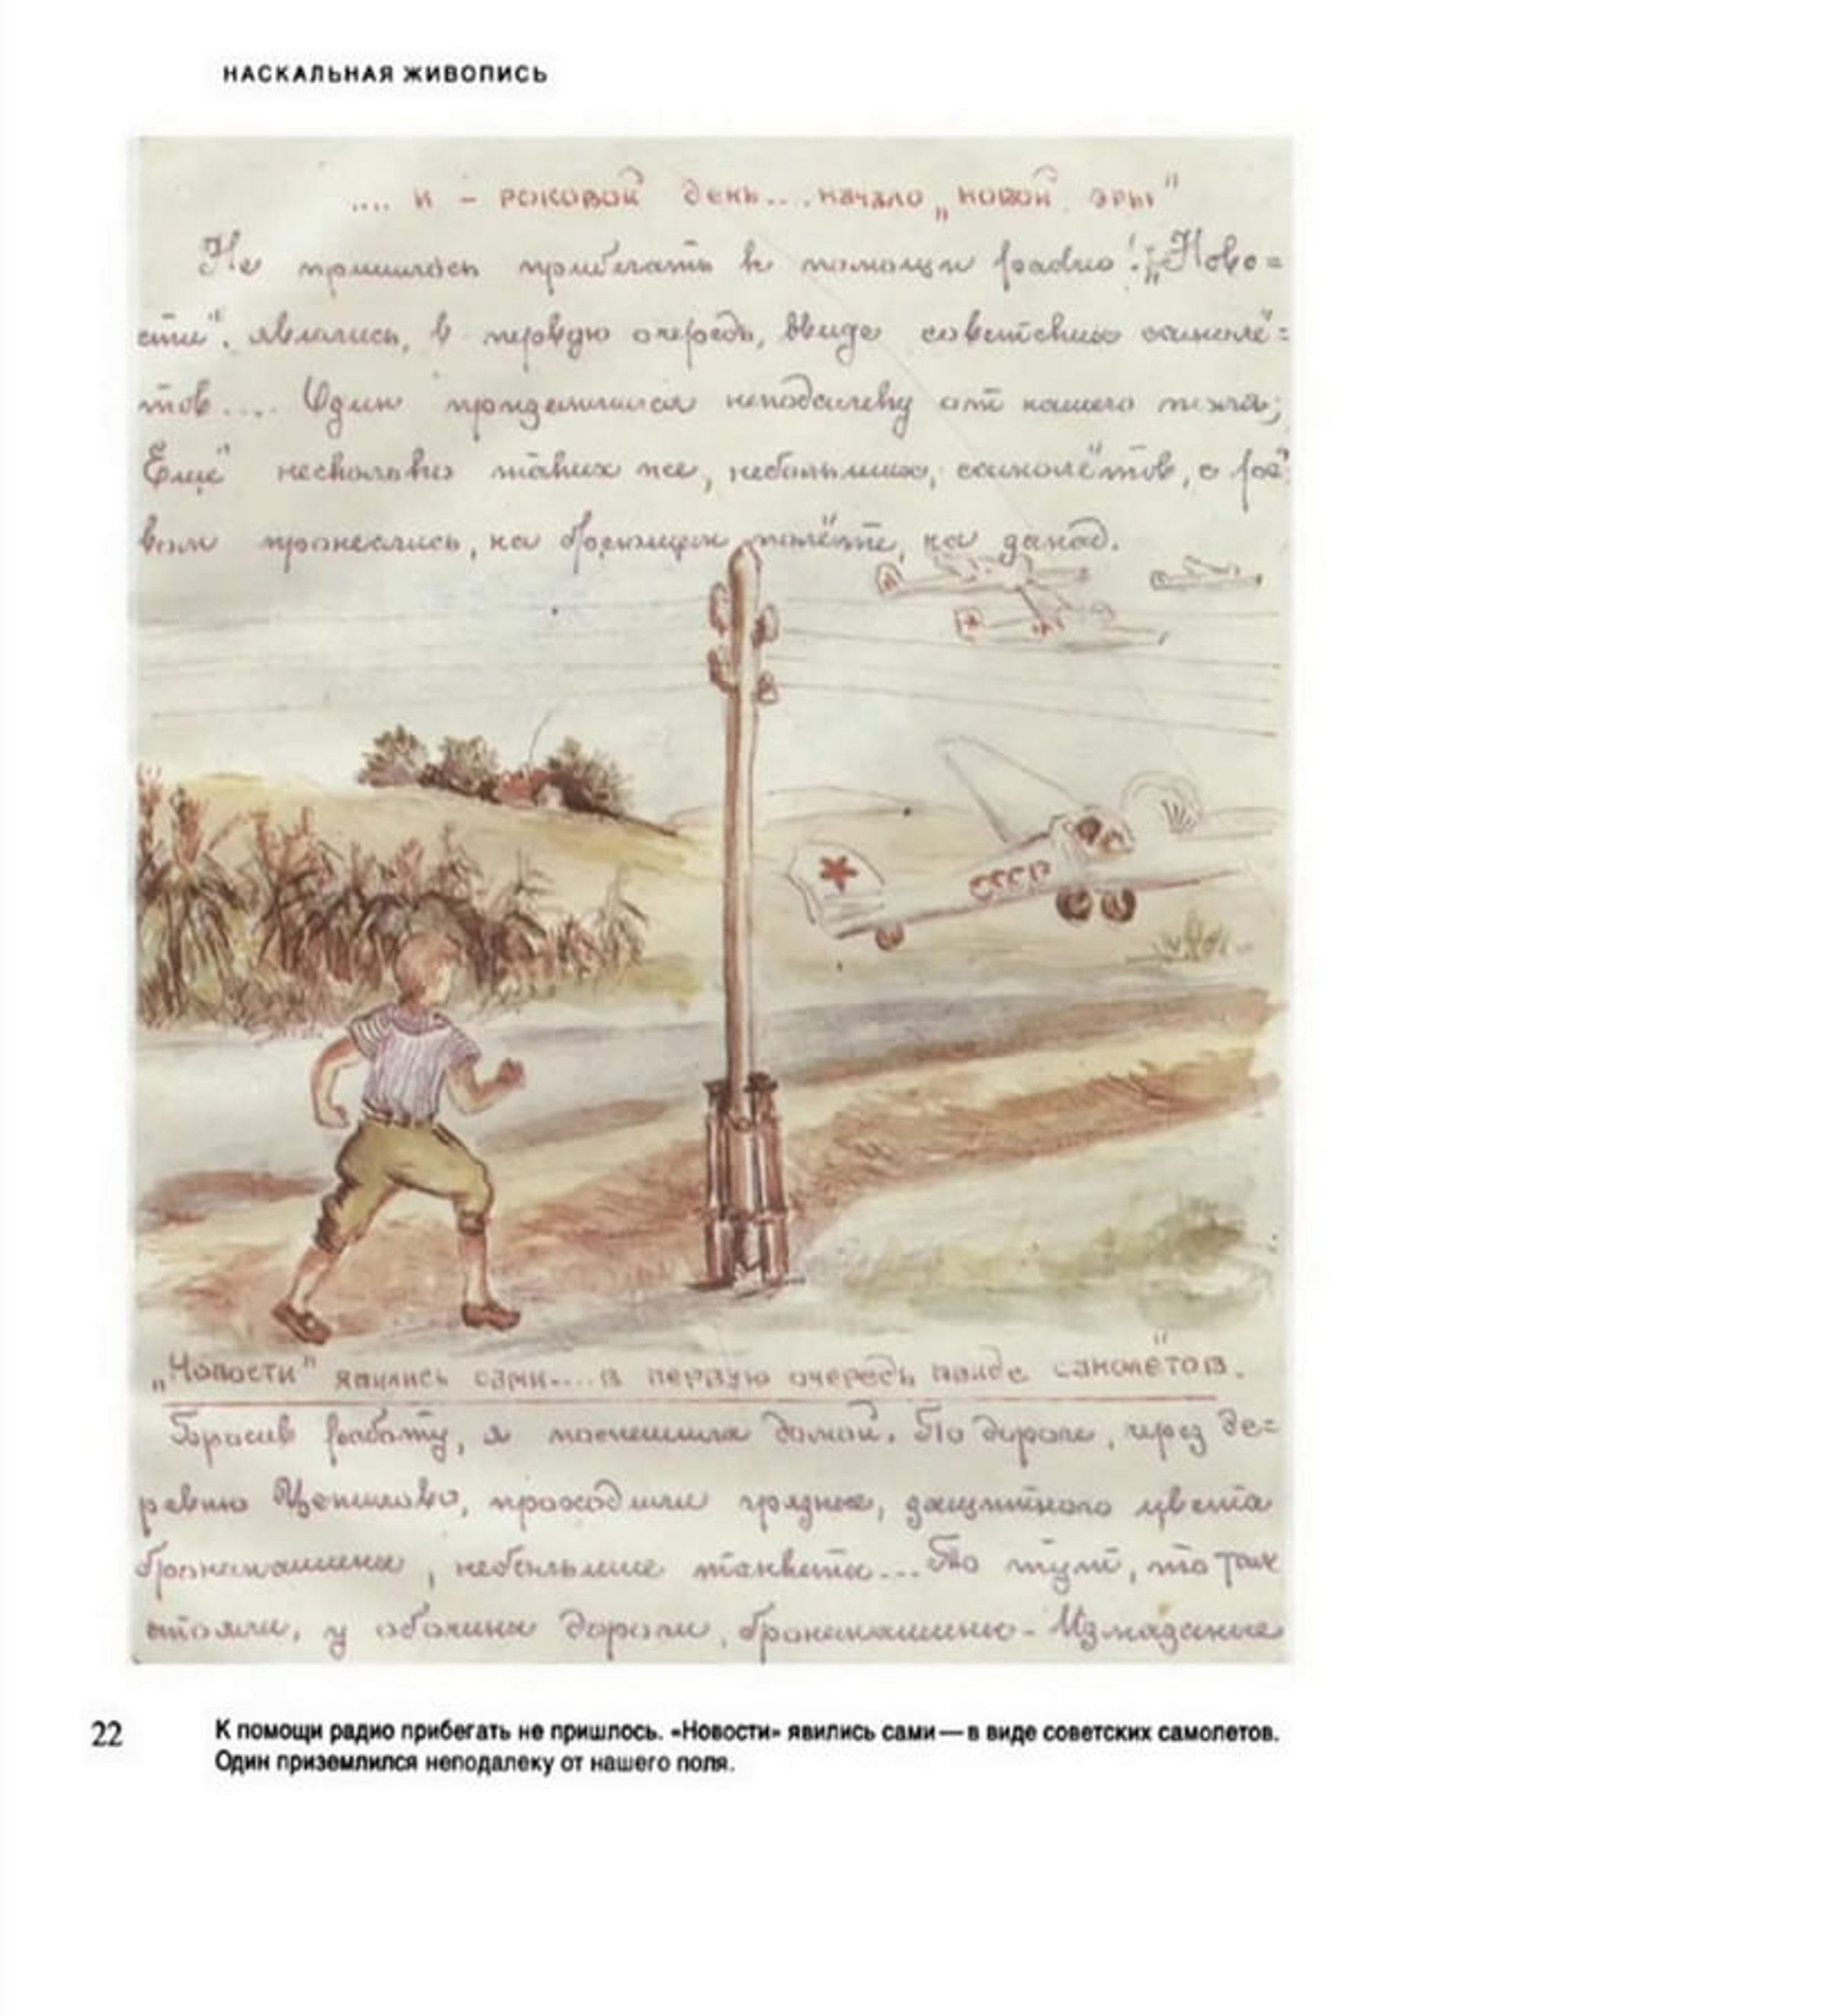 НАСКАЛЬНАЯ ЖИВОПИСЬ
.... и – роковой день.... начало „новой эры"
Не пришлось прибегать к помощи радио! „Ново=
сти". явились, в первую очередь, ввиде советских самолё=
тов.... Один приземлился неподалеку от нашего поля;
Ещё несколько таких же, небольших, самолётов, с рё=
вом пронеслись, на бреющем полёте, на запад.
СССР
„Новости" явились сами.... в первую очередь ввиде самолётов.
Бросив работу, я поспешила домой. По дороге, через де=
ревню Цепилово, проходили грязные, защитного цвета
бронемашины, небольшие танкетки... То тут, то там
стояли, у обочины дороги, бронемашины - Измазанные
22
К помощи радио прибегать не пришлось. «Новости» явились сами — в виде советских самолетов.
Один приземлился неподалеку от нашего поля.